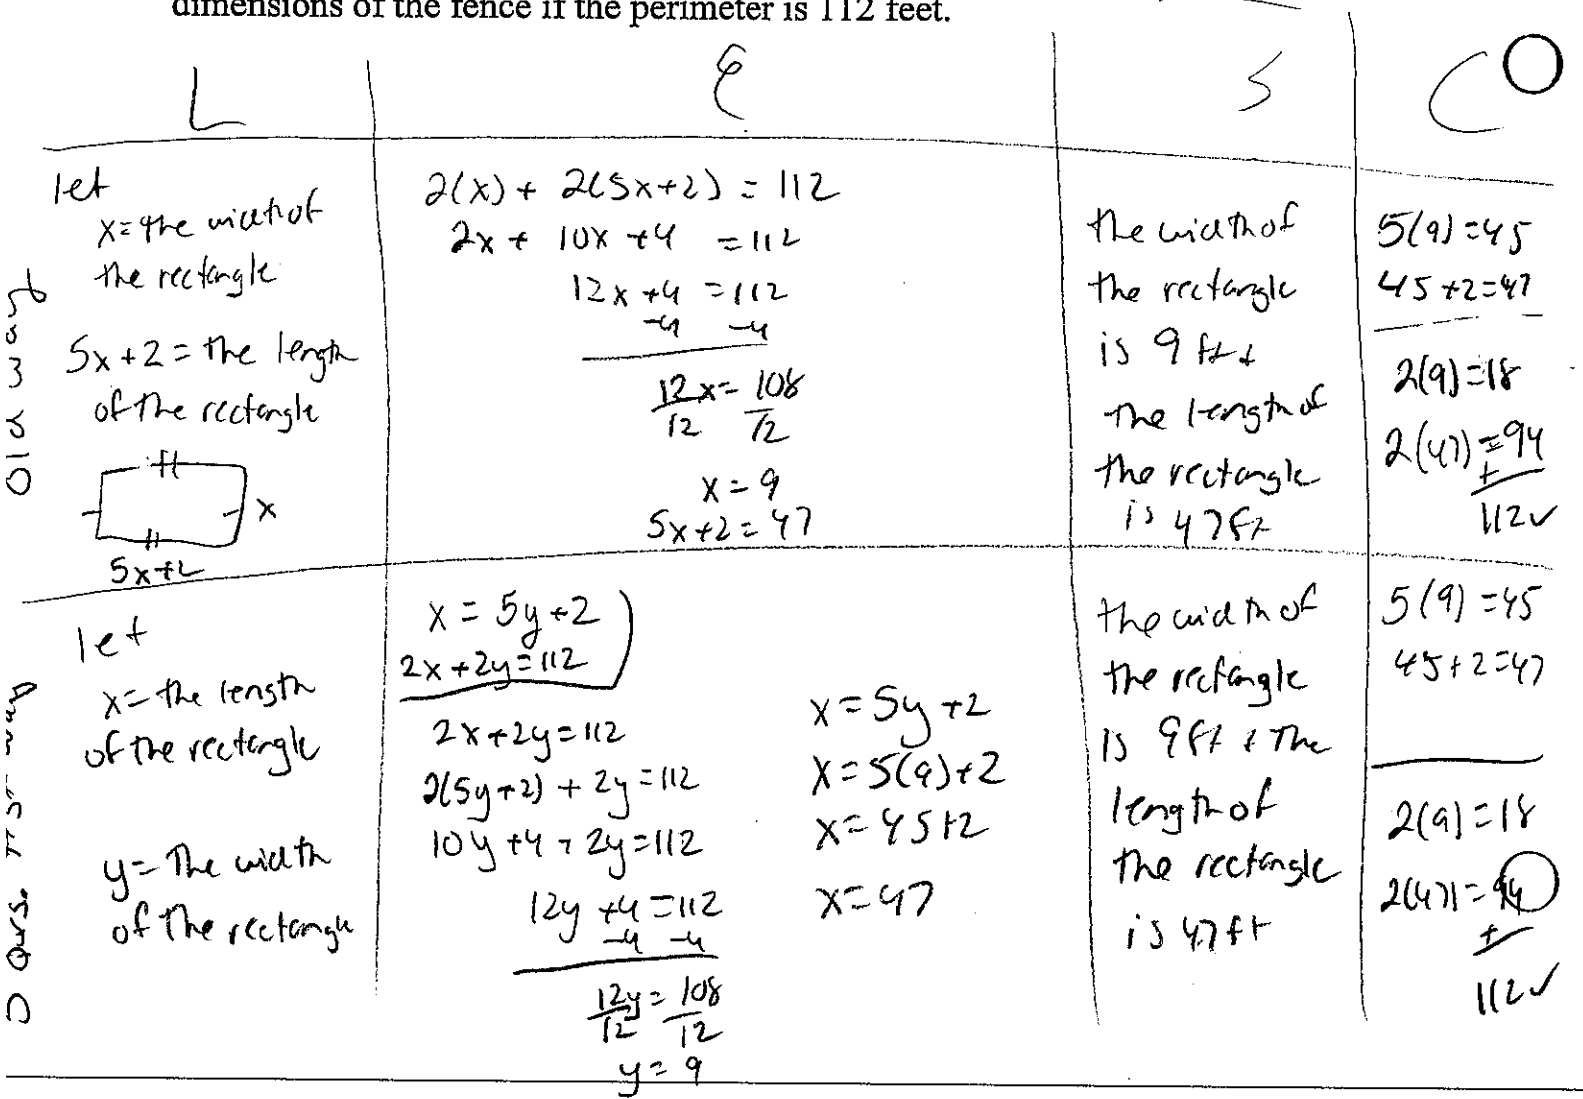 dimensions of the fence if the perimeter is 112 feet.
L E S C
Old way
let
x = the width of
the rectangle
5x+2 = the length
of the rectangle
x
5x+2
2(x) + 2(5x+2) = 112
2x + 10x +4 = 112
12x +4 = 112
-4 -4
12x = 108
12 12
x = 9
5x+2 = 47
the width of
the rectangle
is 9 ft +
the length of
the rectangle
is 47 ft
5(9) = 45
45 +2=47
2(9)=18
2(47) = 94
+
112✓
let
x = the length
of the rectangle
y = The width
of the rectangle
x = 5y +2
2x +2y = 112
2x +2y = 112
2(5y+2) + 2y = 112
10y +4 + 2y = 112
12y +4 = 112
-4 -4
12y = 108
12 12
y = 9
x = 5y +2
x = 5(9)+2
x = 45+2
x = 47
the width of
the rectangle
is 9ft + The
length of
the rectangle
is 47 ft
5(9) = 45
45+2=47
2(9)=18
2(47) = 94
+
112✓